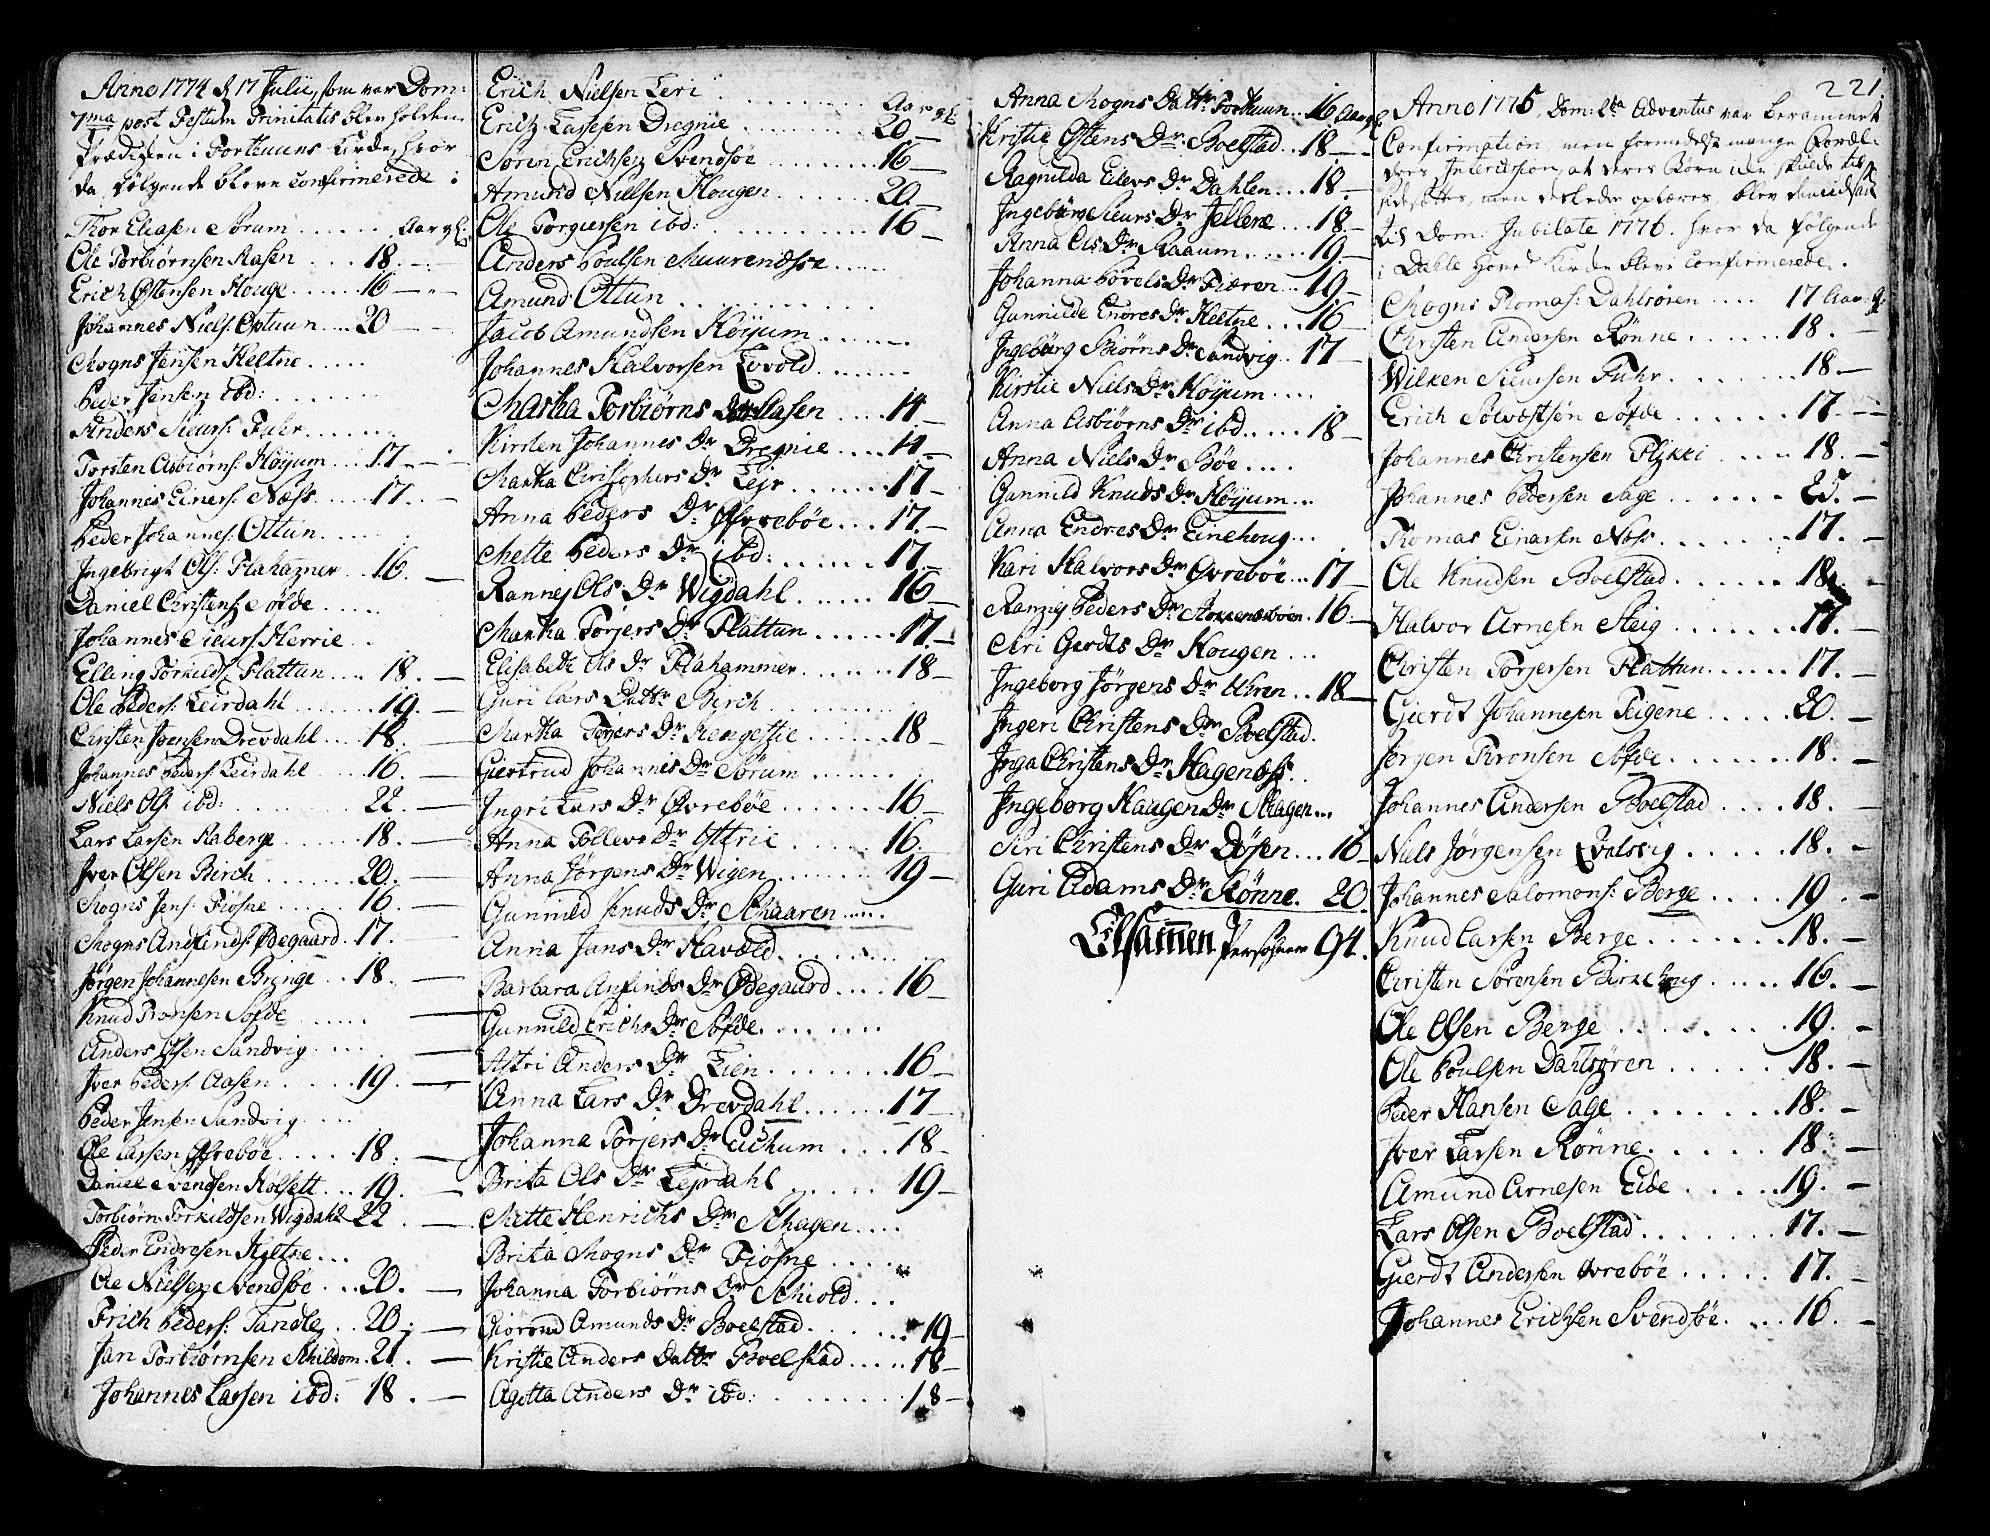 Anno 1774 d 17 Julii, som var Dom:
7ma post Festum Trinitatis blev holden
Prædiken i Fortuuns Kirke, hvor
da følgende bleve confirmerede:
Thor Eliasen Sørum . . . . . . Aar gl:
Ole Torbiørnsen Aasen . . . 18. —
Erich Østensen Houge . . . . . 16 —
Johannes Niels: Optuun . . . 20 —
Mogns Jensen Heltne . . . . .
Peder Jensen ibd: . . . . . . .
Anders Siurs: Fuhr . . . . . . .
Torsten Asbiørns: Høyum . . . 17. —
Johannes Einers: Næss . . . . 17. —
Peder Johannes: Ottun . . . . .
Ingebrigt Ols: Flahammer . . 16. —
Daniel Christens: Søfde . . . . .
Johannes Siurs: Herrie . .
Elling Torkilds: Flattun . . . 18. —
Ole Peders: Leirdahl . . . . . 19. —
Christen Jensen Drevdahl . . . 18. —
Johannes Peders: Leirdahl . . . 16. —
Niels Ols: ibd: . . . . . . . 22. —
Lars Larsen Raberge . . . . . 18. —
Iver Olsen Birch . . . . . . 20. —
Mogns Jens: Fiøsne . . . . . 16. —
Mogns Andfinds: Ødegaard . 17. —
Jørgen Johannesen Bringe . . 18. —
Knud Tronsen Søfde . . . . . . —
Anders Olsen Sandvig . . . . . —
Iver Peders: Aasen . . . . . 19. —
Peder Jensen Sandvig . . . .
Ole Larsen Øfrebøe . . . . . 18. —
Daniel Svendsen Kolsett . . . 19. —
Torbiørn Torkildsen Wigdahl 22. —
Peder Endresen Hæltne . . .
Ole Nielsen Svendsøe . . . 20. —
Erich Peders: Tandle . . . 20. —
Jan Torbiørnsen Skildom . 21. —
Johannes Larsen ibd: 18. —
Erich Nielsen Leri . . . . . . . . Aar gl:
Erich Lassesen Dregnie . . . . . . 20 —
Søren Erichsen Svendsøe . . . . . . 16 —
Amund Nielsen Hougen . . . . . . 20. —
Ole Torgiersen ibd: . . . . . . . . 16 —
Anders Poulsen Muurenæsse . . . . . .
Amund Ottun . . . . . . . . .
Jacob Amundsen Høyum . . . . . .
Johannes Halvorsen Lovold . . . . . . .
Martha Torbiørns Dr Aasen . . . . . 14 —
Kirsten Johannes Dr Dregnie . . . . 14 —
Martha Christophers Dr Lejr . . . . . . 17 —
Anna Peders Dr Øfvrebøe . . . 17. —
Mette Peders Dr ibd: . . . . . . . 17. —
Rannej Ols Dr Wigdahl . . . . . . 16 —
Martha Torjers Dr Flattun . . . . . . 17. —
Elisabeth Ols Dr Flahammer . . . . . . 18 —
Guri Lars Dattr Birch . . . . . . . . . .
Martha Torjers Dr Rengestie . . . . . 18 —
Giertrud Johannes Dr Sørum . . . . . . .
Ingri Lars Dr Øvrebøe . . . . . . . 16 —
Anna Tollevs Dr Utterie . . . . . . 16. —
Anna Jørgens Dr Wigen . . . . . . . 19 —
Gunnild Knuds Dr Schaaren . . . . . .
Anna Jans Dr Havold . . . . . . . . .
Barbara Anfinds Dr Ødegaard . . . . 16 —
Gunnild Erichs Dr Søfde . . . . . . . .
Astri Anders Dr Lien . . . . . . . 16 —
Anna Lars Dr Drevdahl . . . . . . 17 —
Johanna Torjers Dr Eichum . . . . 18 —
Brita Ols Dr Lejrdahl . . . . . . 19 —
Mette Henrichs Dr Schagen . . . .
Brita Mogns Dr Fiøsne . . . . .
Johanna Torbiørns Dr Schiold . . .
Giørond Amunds Dr Boelstad . . . . . . 19 —
Kristie Anders Dattr Boelstad . . . . . 18 —
Agotta Anders Dr ibd: . . . . . . . . 18 —
Anna Mogns Dattr Fortuun . . . 16 Aar gl
Kristie Østens Dr Boelstad . . 18 —
Ragnilda Eilevs Dr Dahlen . . . 18. —
Ingeborg Siurs Dr Jellene . . . . 18 —
Anna Ols Dr Kaaum . . . . . 19 —
Johanna Povels Dr Fiæren . . . 19 —
Gunnilde Endres Dr Heltne . . . 16 —
Ingeborg Biørns Dr Sandvig . . 17 —
Kirstie Niels Dr Høyum . . . .
Anna Asbiørns Dr ibd . . . . . 18 —
Anna Niels Dr Bøe . . . .
Gunnild Knuds Dr Høyum . . .
Anna Endres Dr Einehoug . . .
Kari Halvors Dr Øvrebøe . . . 17 —
Ranzig Peders Dr 16. —
Siri Gerdts Dr Hougen . . .
Ingeborg Jørgens Dr Uhren . . 18 —
Ingeri Christens Dr Boelstad.
Inga Christens Dr Hagenæss . .
Ingeborg Haagen Dr Schagen . . .
Siri Christens Dr Døsen . . . 16 —
Guri Adams Dr Rønne. 20.
Tilsammen Persohner 94.
221.
Anno 1775, Dom: 2da Adventus var berammet
Confirmation, men formedelst mange Foræl-
dres Intercession, at deres Børn icke skulde til-
sidesættes, men derheder oplæres, blev den udsat
til Dom: Jubilate 1776. hvor da følgende
i Dahle hoved Kirche blevi confirmerede.
Mogns Thomas: Dahlsøren . . . . 17 Aar g:
Christen Andersen Rønne . . . . . . 18. —
Wilken Siursen Fuhr . . . . . . . 18. —
Erich Sølvæstsen Søfde . . . . . . 17. —
Johannes Christensen Flykki . . . . . 18. —
Johannes Pedersen Sage . . . . . . 25. —
Thomas Einarsen Næss . . . . . . . 17. —
Ole Knudsen Boelstad . . . . . . 18. —
Halvor Arnesen Steig . . . . . . . 17. —
Christen Torjersen Flattun . . . . . 17. —
Gierdt Johannesen Teigene . . . . . 20. —
Jørgen Tronsen Søfde . . . . . . . 18. —
Johannes Andersen Boelstad . . . . 18. —
Niels Jørgensen Qvalevig . . . . . 18. —
Johannes Salomons: Berge . . . . 19. —
Knud Larsen Berge . . . . . . . 18. —
Christen Sørensen Birkehoug . . . . . 16. —
Ole Olsen Berge . . . . . . . 19. —
Ole Poulsen Dahlsøren . . . . . . 18. —
Peder Hansen Sage . . . . . . . 18. —
Iver Larsen Rønne . . . . . . . 18. —
Amund Arnesen Eide . . . . . . 19. —
Lars Olsen Boelstad . . . . . . . 17. —
Gierdt Andersen Øvrebøe . . . . . 17. —
Johannes Erichsen Svendsøe . . . . 16. —